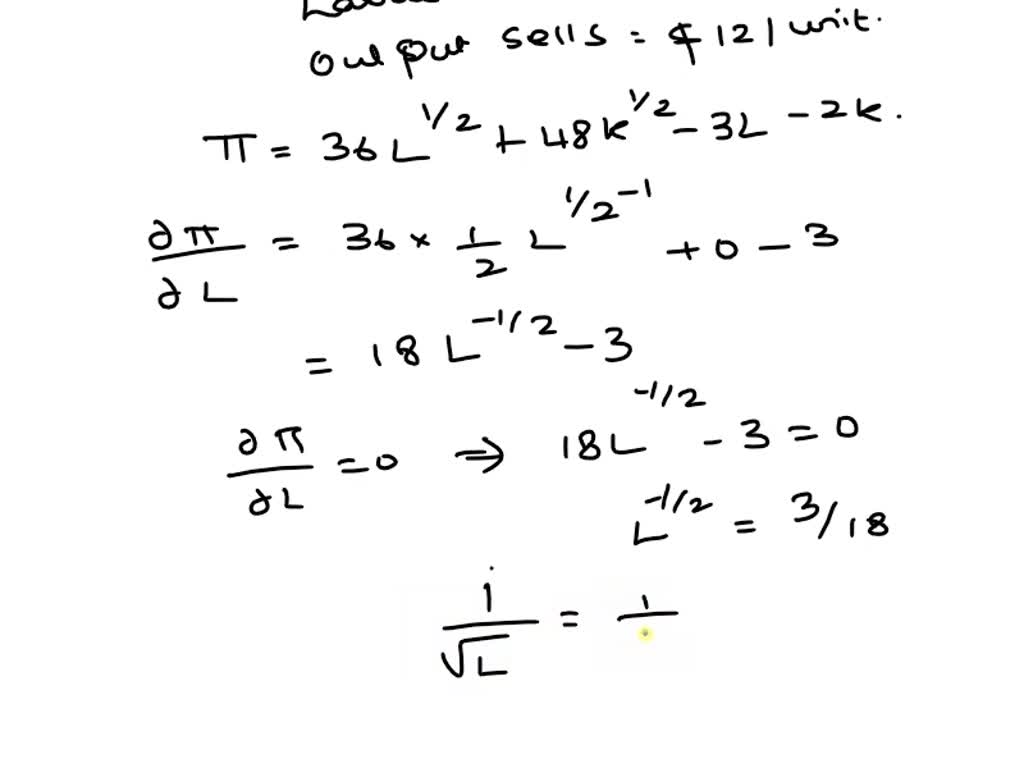 output sells = $12/unit.
π = 36L^1/2 + 48K^1/2 - 3L - 2K.
∂π/∂L = 36 × 1/2 L^1/2-1 + 0 - 3
= 18 L^-1/2 - 3
∂π/∂L = 0 ⇒ 18L^-1/2 - 3 = 0
L^-1/2 = 3/18
1/√L = 1/